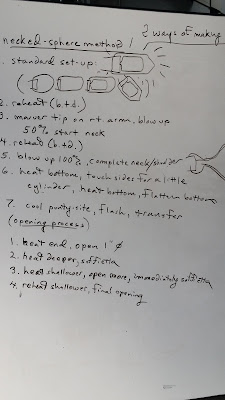 2 ways of making
necked-sphere method /
1. standard set-up:
2. reheat (b.t.d.)
3. marver tip on rt. arm, blow up
50% start neck
4. reheat (b.t.d.)
5. blow up 100%, complete neck/
6. heat bottom, touch sides for a little
cylinder, heat bottom, flatten bottom
7. cool punty-site, flash, transfer
(opening process)
1. heat end, open 1" ø
2. heat deeper, soffietta
3. heat shallower, open more, immediately soffietta
4. reheat shallower, final opening